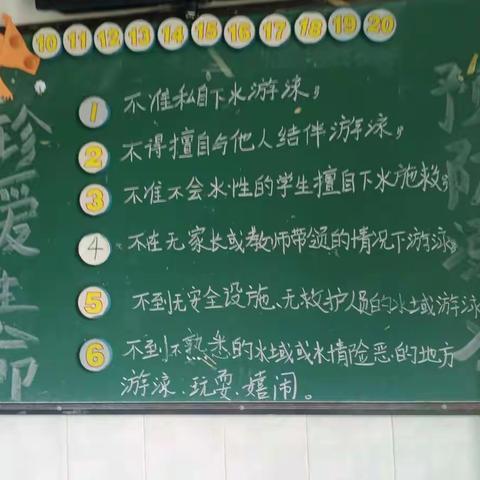 10 11 12 13 14 15 16 17 18 19 20
珍爱生命
1 不准私自下水游泳；
2 不得擅自与他人结伴游泳；
3 不准不会水性的学生擅自下水施救；
4 不在无家长或教师带领的情况下游泳；
5 不到无安全设施、无救护人员的水域游泳
6 不到不熟悉的水域或水情险恶的地方
游泳、玩耍、嬉闹。
预防